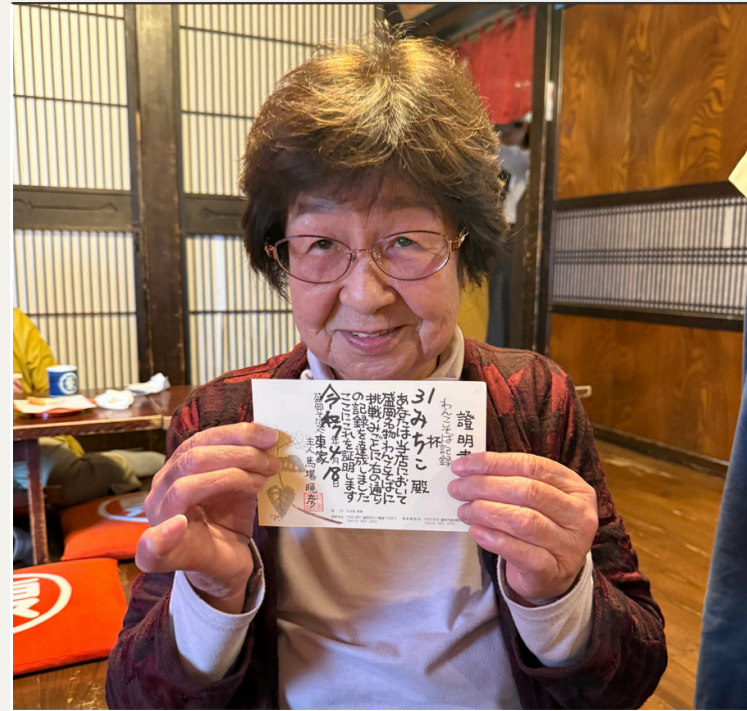 證明書
わんこそば記録
31杯
みちこ殿
あなたは当店において
盛岡名物わんこそばに
挑戦みごとに右の通り
の記録を達成しました
ここにこれを証明します
令和7年4月18日
東家
主人 馬場暁彦